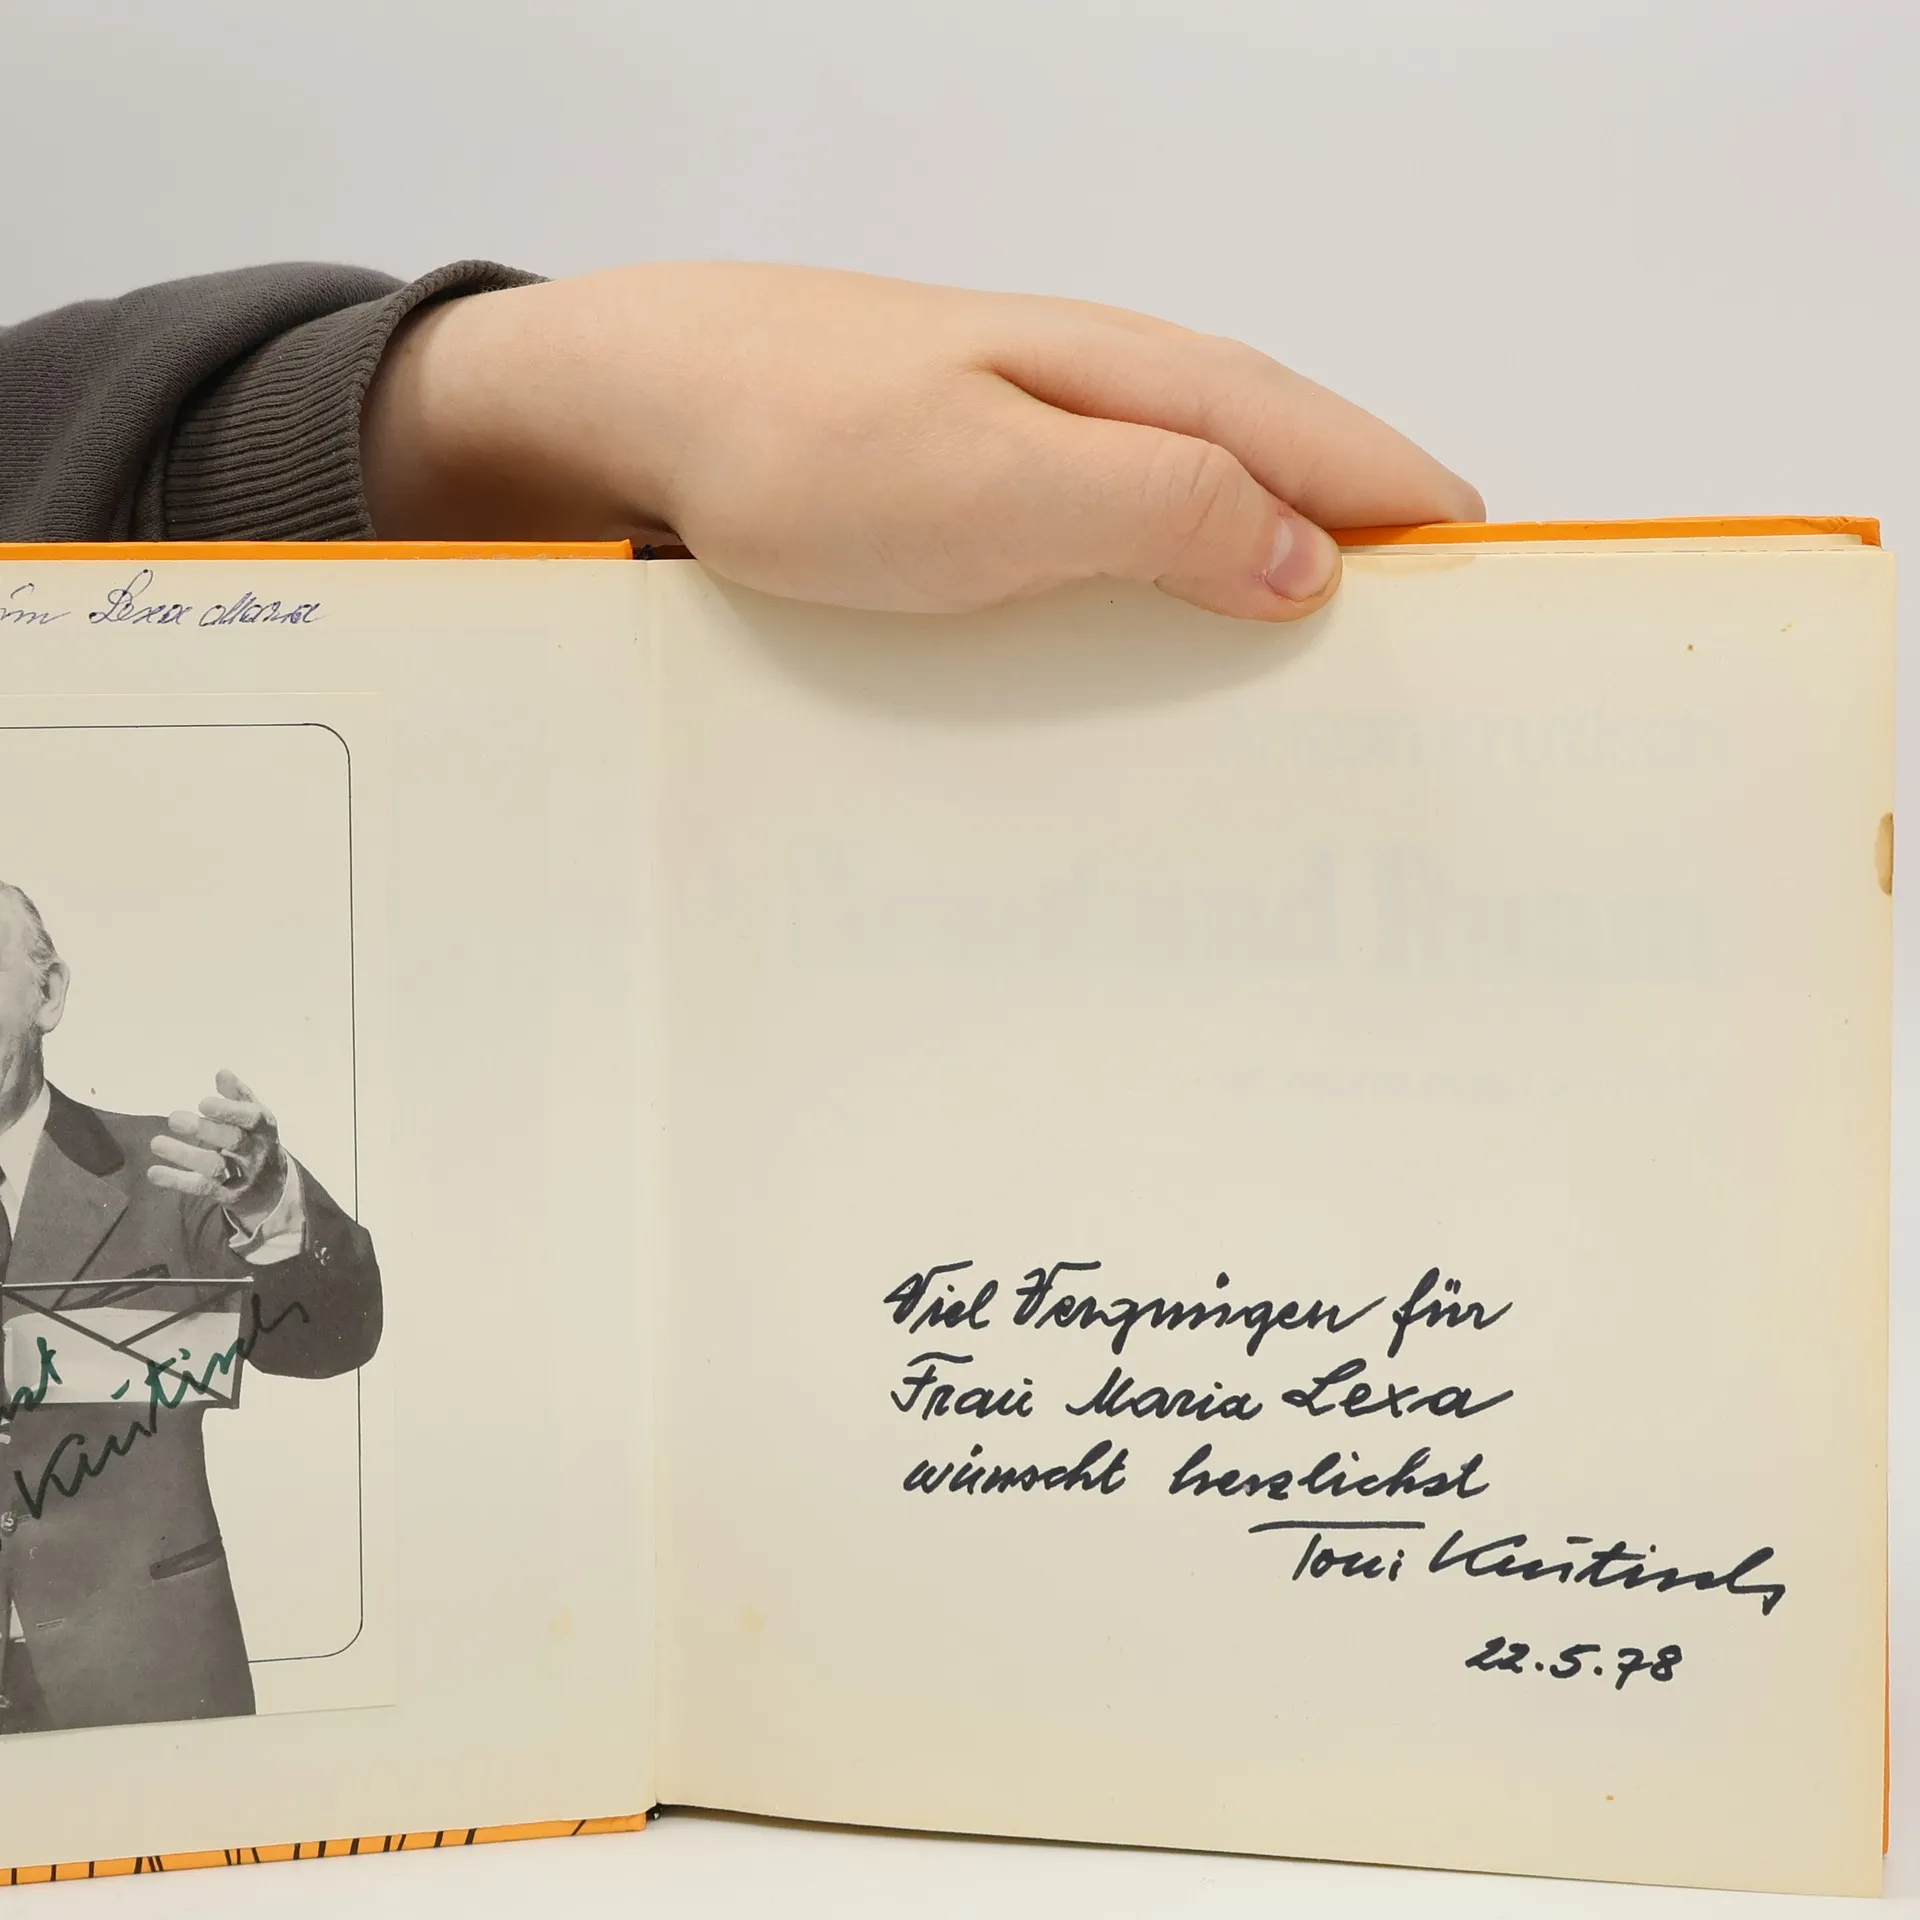 Lexa Maria
Viel Vergnügen für
Frau Maria Lexa
wünscht herzlichst
Toni Kutisch
22.5.78